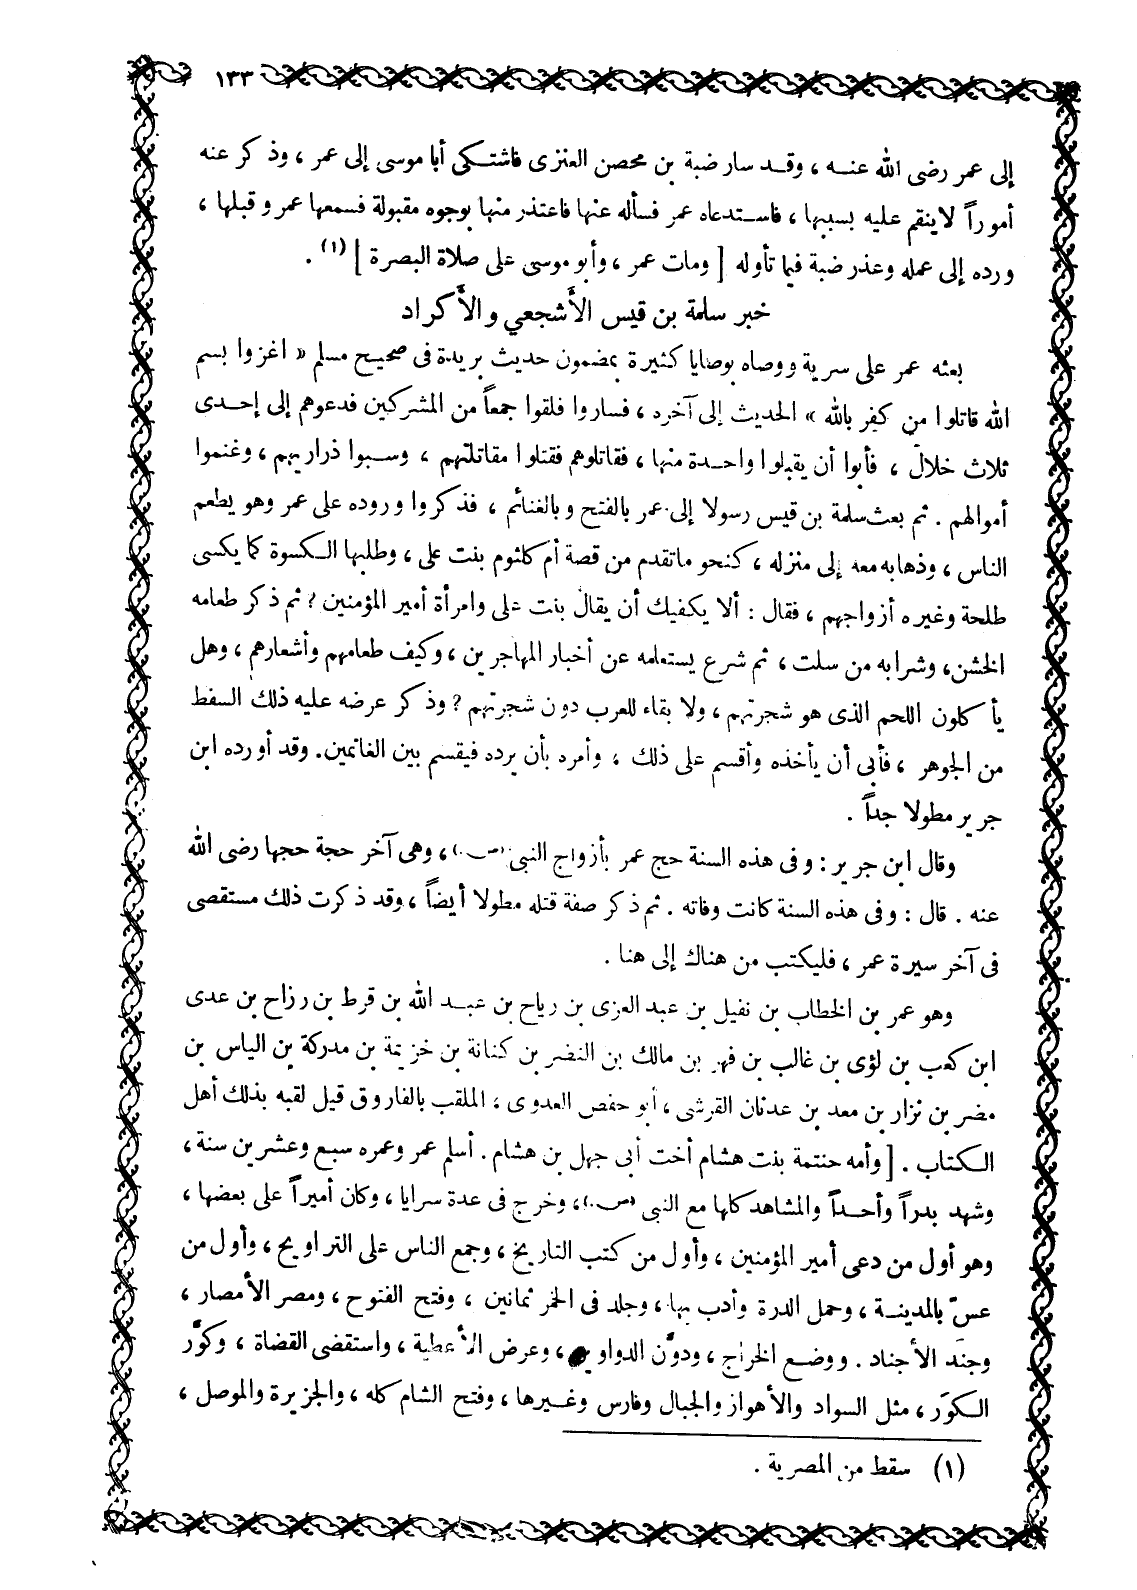 ١٣٣
إلى عمر رضى الله عنه ، وقد سار ضبة بن محصن العنزى فاشتكى أبا موسى إلى عمر ، وذكر عنه
أموراً لاينقم عليه بسببها ، فاستدعاه عمر فسأله عنها فاعتذر منها بوجوه مقبولة فسمعها عمر وقبلها ،
ورده إلى عمله وعذر ضبة فيما تأوله [ ومات عمر ، وأبو موسى على صلاة البصرة ] (١) .
خبر سلمة بن قيس الأشجعي والأكراد
بعثه عمر على سرية ووصاه بوصايا كثيرة بمضمون حديث بريدة فى صحيح مسلم « اغزوا بسم
الله قاتلوا من كفر بالله » الحديث إلى آخره ، فساروا فلقوا جمعاً من المشركين فدعوهم إلى إحدى
ثلاث خلال ، فأبوا أن يقبلوا واحدة منها ، فقاتلوهم فقتلوا مقاتلتهم ، وسبوا ذراريهم ، وغنموا
أموالهم . ثم بعث سلمة بن قيس رسولا إلى عمر بالفتح وبالغنائم ، فذكروا وروده على عمر وهو يطعم
الناس ، وذهابه معه إلى منزله ، كنحو ماتقدم من قصة أم كلثوم بنت على ، وطلبها الكسوة كما يكسى
طلحة وغيره أزواجهم ، فقال : ألا يكفيك أن يقال بنت على وامرأة أمير المؤمنين ؟ ثم ذكر طعامه
الخشن، وشرابه من سلت ، ثم شرع يستعلمه عن أخبار المهاجرين ، وكيف طعامهم وأشعارهم ، وهل
يأكلون اللحم الذى هو شجرتهم ، ولا بقاء للعرب دون شجرتهم ؟ وذكر عرضه عليه ذلك السفط
من الجوهر ، فأبى أن يأخذه وأقسم على ذلك ، وأمره بأن يرده فيقسم بين الغانمين. وقد أورده ابن
جرير مطولا جداً .
وقال ابن جرير : وفى هذه السنة حج عمر بأزواج النبى (ص) ، وهى آخر حجة حجها رضى الله
عنه . قال : وفى هذه السنة كانت وفاته . ثم ذكر صفة قتله مطولا أيضاً ، وقد ذكرت ذلك مستقصى
فى آخر سيرة عمر ، فليكتب من هناك إلى هنا .
وهو عمر بن الخطاب بن نفيل بن عبد العزى بن رياح بن عبد الله بن قرط بن رزاح بن عدى
ابن كعب بن لؤى بن غالب بن فهر بن مالك بن النضر بن كنانة بن خزيمة بن مدركة بن الياس بن
مضر بن نزار بن معد بن عدنان القرشى ، أبو حفص العدوى ، الملقب بالفاروق قيل لقبه بذلك أهل
الكتاب . [ وأمه حنتمة بنت هشام أخت أبى جهل بن هشام . أسلم عمر وعمره سبع وعشرين سنة ،
وشهد بدراً وأحداً والمشاهد كلها مع النبى (ص) ، وخرج فى عدة سرايا ، وكان أميراً على بعضها ،
وهو أول من دعى أمير المؤمنين ، وأول من كتب التاريخ ، وجمع الناس على التراويح ، وأول من
عسّ بالمدينة ، وحمل الدرة وأدب بها ، وجلد فى الخمر ثمانين ، وفتح الفتوح ، ومصر الأمصار ،
وجند الأجناد . ووضع الخراج ، ودوّن الدواوين ، وعرض الأعطية ، واستقضى القضاة ، وكوّر
الكوَر ، مثل السواد والأهواز والجبال وفارس وغيرها ، وفتح الشام كله ، والجزيرة والموصل ،
(١) سقط من المصرية .